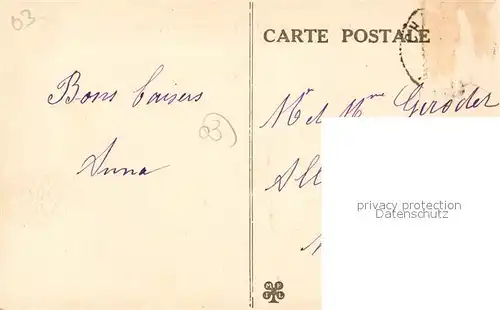 03
CARTE POSTALE
Bons baisers
03
Mr et Mme Geroder
Anna
privacy protection
Datenschutz